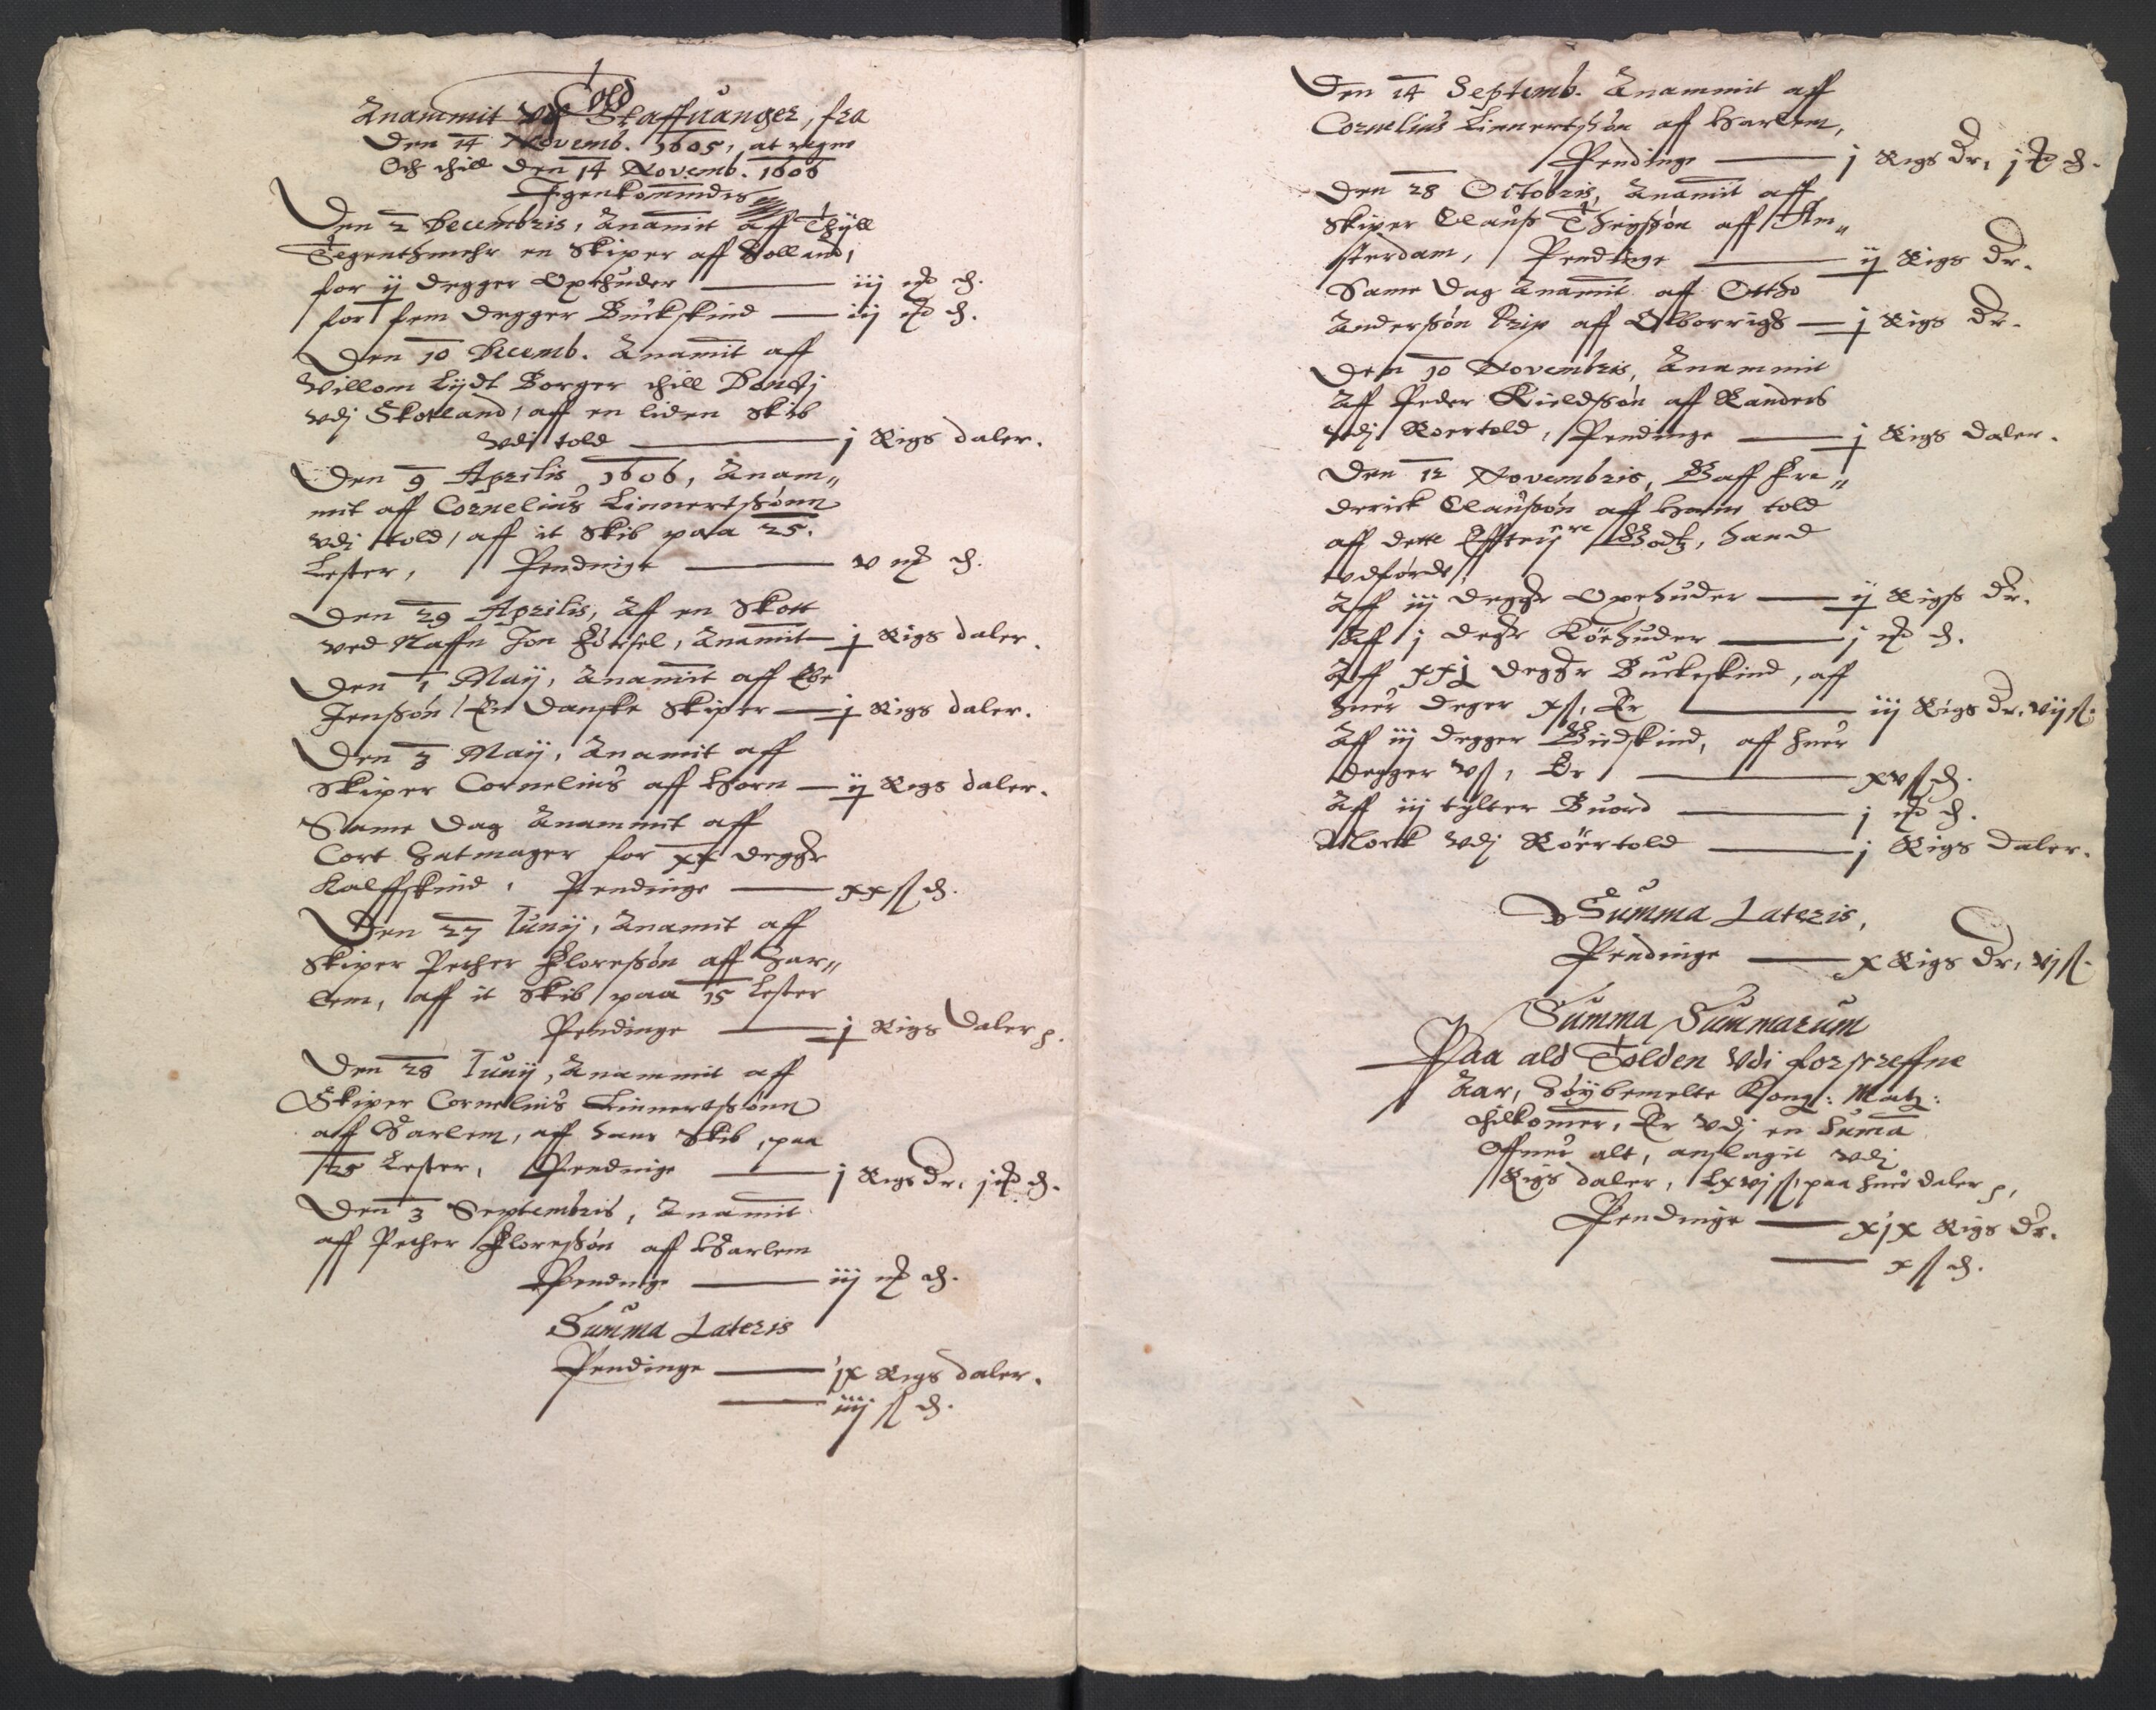 Told
Anammit Vdj Staffuanger, fra
Den 14 Novemb. 1605, at regne
Och thill den 14 Novemb. 1606
Igenkommendis
Den 2 Decembris, Anamit Aff Thyll
en Skiper aff Holland,
for ij degger Oxehuder —— iij mȩ d.
for fem degger Buckskind —— iij mȩ d.
Den 10 Decemb. Anamit aff
Villom Lydt Borger thill Dondj
vdj Skotland, aff en liden Skib
Vdi told —— j Rigs daler.
Den 9 Aprilis 1606, Anam„
mit aff Cornelius Linnertssønn
vdi told, aff it Skib paa 25.
Lester, Pendinge —— v mȩ d.
Den 29 Aprilis, Aff en Skott
ved Naffn Jon, Anamit — j Rigs daler.
Den 1 Maij, Anamit aff Ebe
Jenssøn, En Danske Skiper — j Rigs daler.
Den 3 Maij, Anamit aff
Skiper Cornelius aff Horn — ij Rigs daler.
Same Dag Anammit aff
Cort Hatmager for xx deggr
Kalffskind, Pendinge —— xx ß d.
Den 27 Junij, Anamit aff
Skiper Pether Floressøn aff Har„
lem, aff it Skib paa 15 Lester
Pendinge —— j Rigs Daler
Den 28 Junij, Anammit aff
Skiper Cornelius Linnertssønn
aff Harlem, aff hans Skib, paa
25 Lester, Pendinge —— j Rigs Dr, j mȩ d.
Den 3 Septembris, Anamit
aff Pether Floressøn aff Harlem
Pendinge —— iij mȩ d.
Summa Lateris
Pendinge —— ix Rigs daler.
—— iiij ß d.
Den 14 Septemb. Anammit aff
Cornelius Linnertssøn aff Harlem,
Pendinge —— j Rigs Dr, j mȩ d.
Den 28 Octobris, Anamit aff
Skiper Clauß Theyssøn aff Am„
sterdam, Pendinge —— ij Rigs Dr.
Same Dag Anamit aff Ottho
Anderssøn Krip aff Olborrigh — j Rigs Dr.
Den 10 Novembris, Anammit
Aff Peder Kieldssøn aff Randers
vdj Roertold, Pendinge —— j Rigs Daler.
Den 12 Novembris, Gaff Fre„
derick Claussøn aff Horn told
aff dette Effterne Godtz, hand
vdførde
Aff iij deggr Oxehuder —— ij Rigs Dr.
Aff j degr Køehuder —— j mȩ d.
Aff xxj deggr Buckeskind, aff
huer deger x ß, Er —— iij Rigs Dr, vij ß.
Aff iij degger Giedskind, aff huer
degger v ß, Er —— xv ß d.
Aff iij tylter Buord —— j mȩ d.
Noch vdj Röertold —— j Rigs Daler.
Summa Lateris,
Pendinge —— x Rigs Dr, vj ß.
Summa Summarum
Paa ald Tolden Vdi forskreffne
Aar, Høybemelte Kong: Matz:
thilkomer, Er vdj en Suma
Offuer alt, anslagit vdj
Rigs daler, Lxvj ß, paa huer daler,
Pendinge —— xjx Rigs Dr.
—— x ß d.